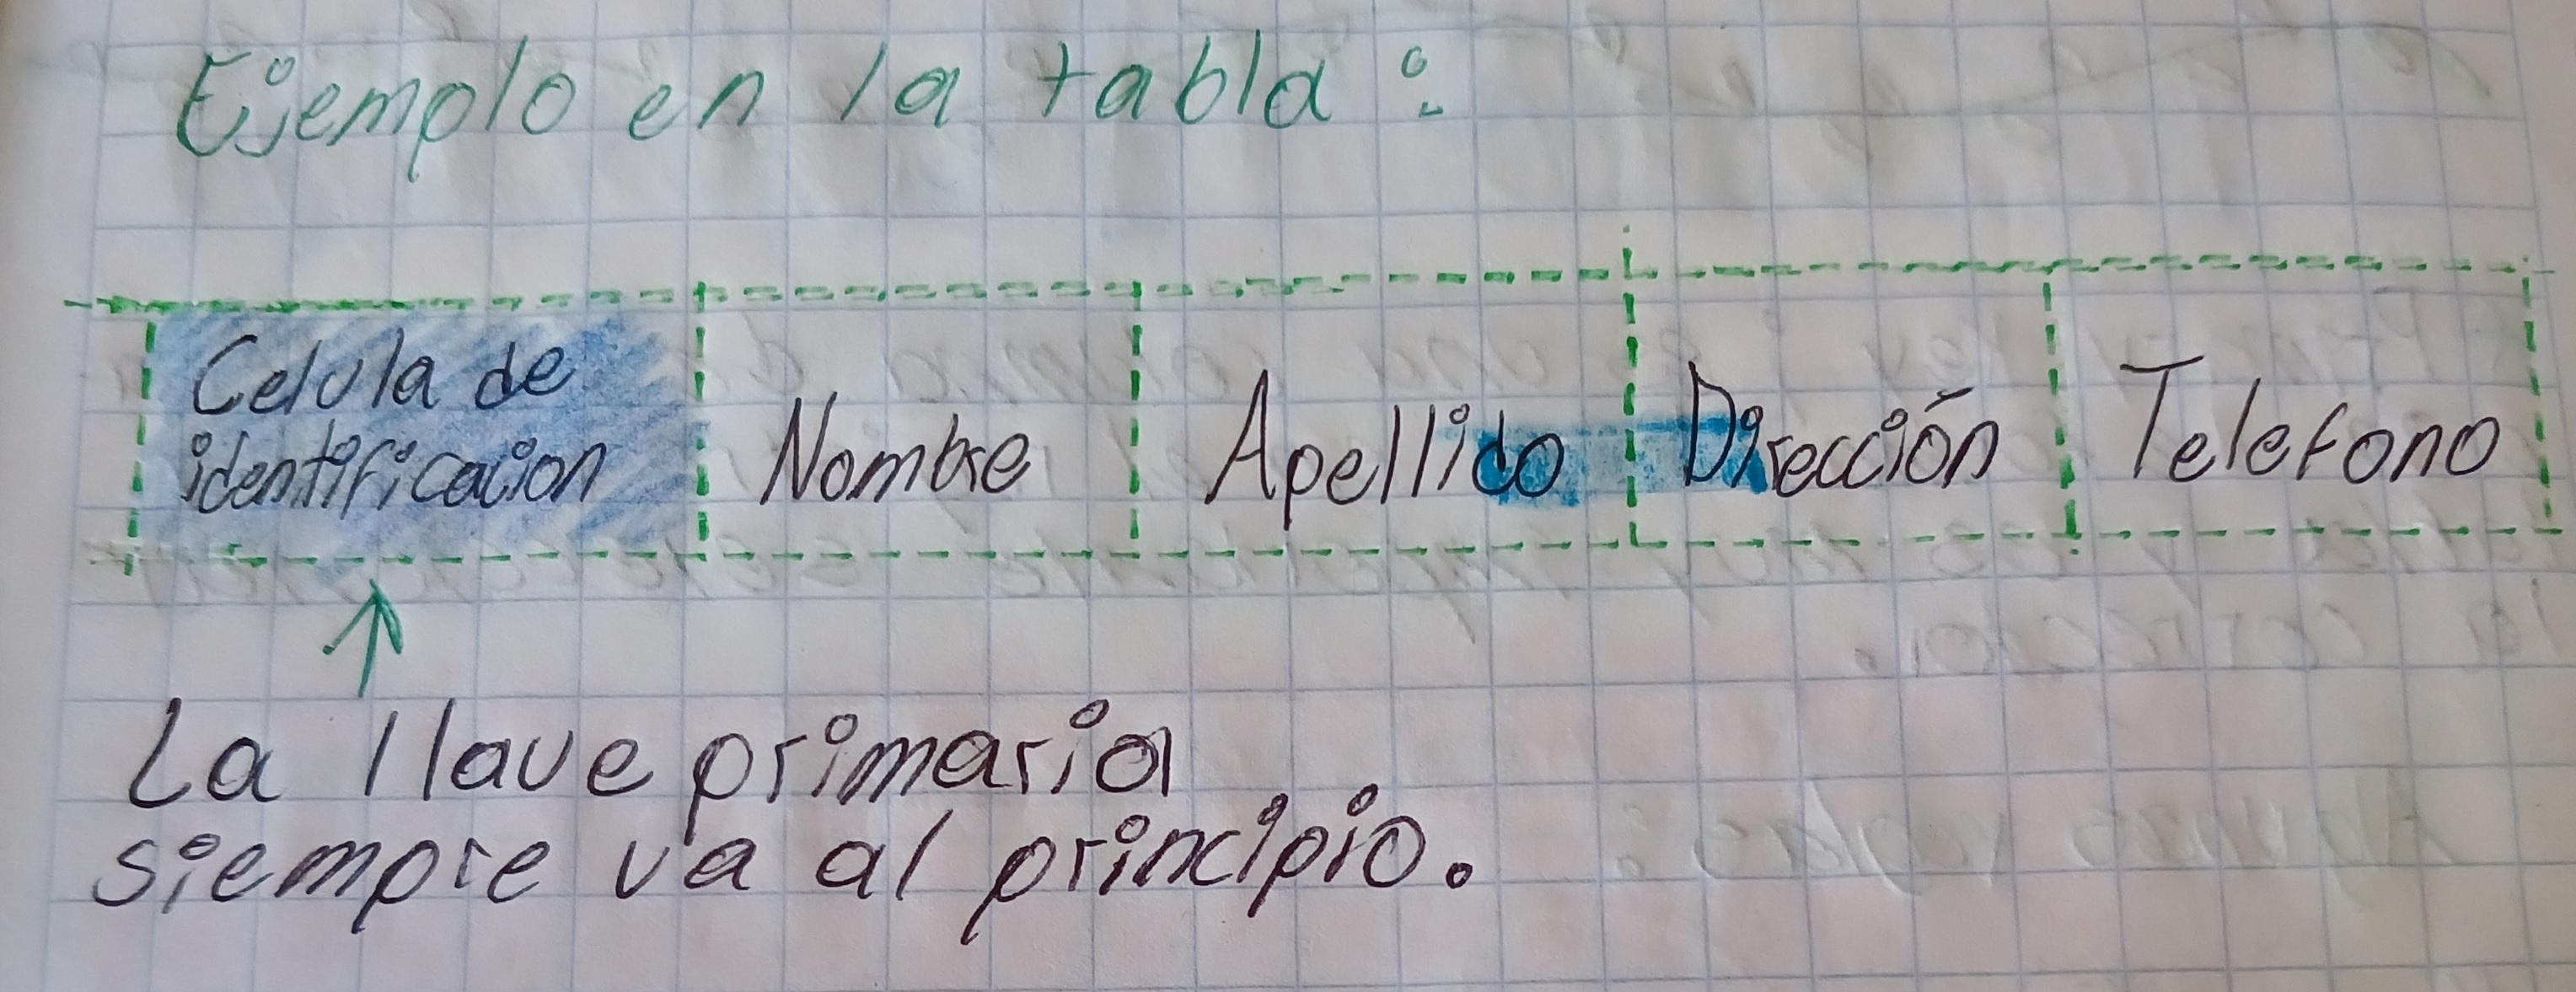 Ejemplo en la tabla:
Celula de
identificacion
Nombre
Apellido
Dirección
Telefono
La llave primaria
siempre va al principio.